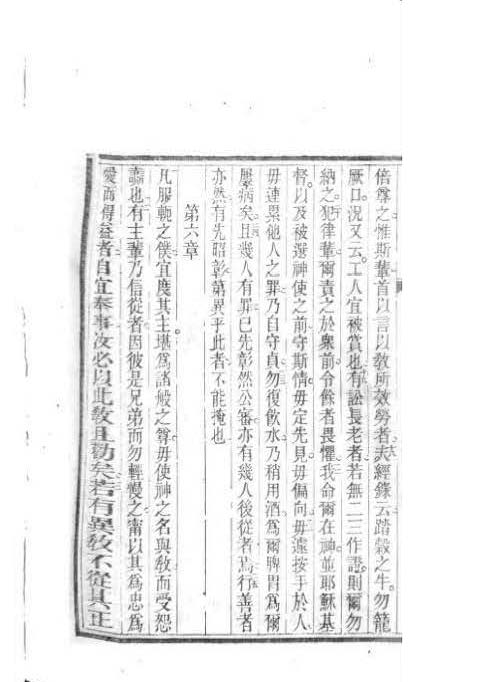 倍尊之惟斯輩首以言以敎所效勞者夫經錄云踏穀之牛勿籠
厥口況又云工人宜被賞也有訟長老者若無二三作證則爾勿
納之犯律輩爾責之於衆前令餘者畏懼我命爾在神並耶穌基
督以及被選神使之前守斯情毋定先見毋偏向毋遽按手於人
毋連累他人之罪乃自守貞勿復飲水乃稍用酒爲爾脾胃爲爾
屢病矣且幾人有罪已先彰然公審亦有幾人後從者焉行善者
亦然有先昭彰第異乎此者不能掩也
第六章
凡服軛之僕宜度其主堪爲諸般之尊毋使神之名與敎而受怨
讟也有主輩乃信從者因彼是兄弟而勿輕慢之甯以其爲忠爲
愛而得益者自宜奉事汝必以此敎且勸矣若有異敎不從其正